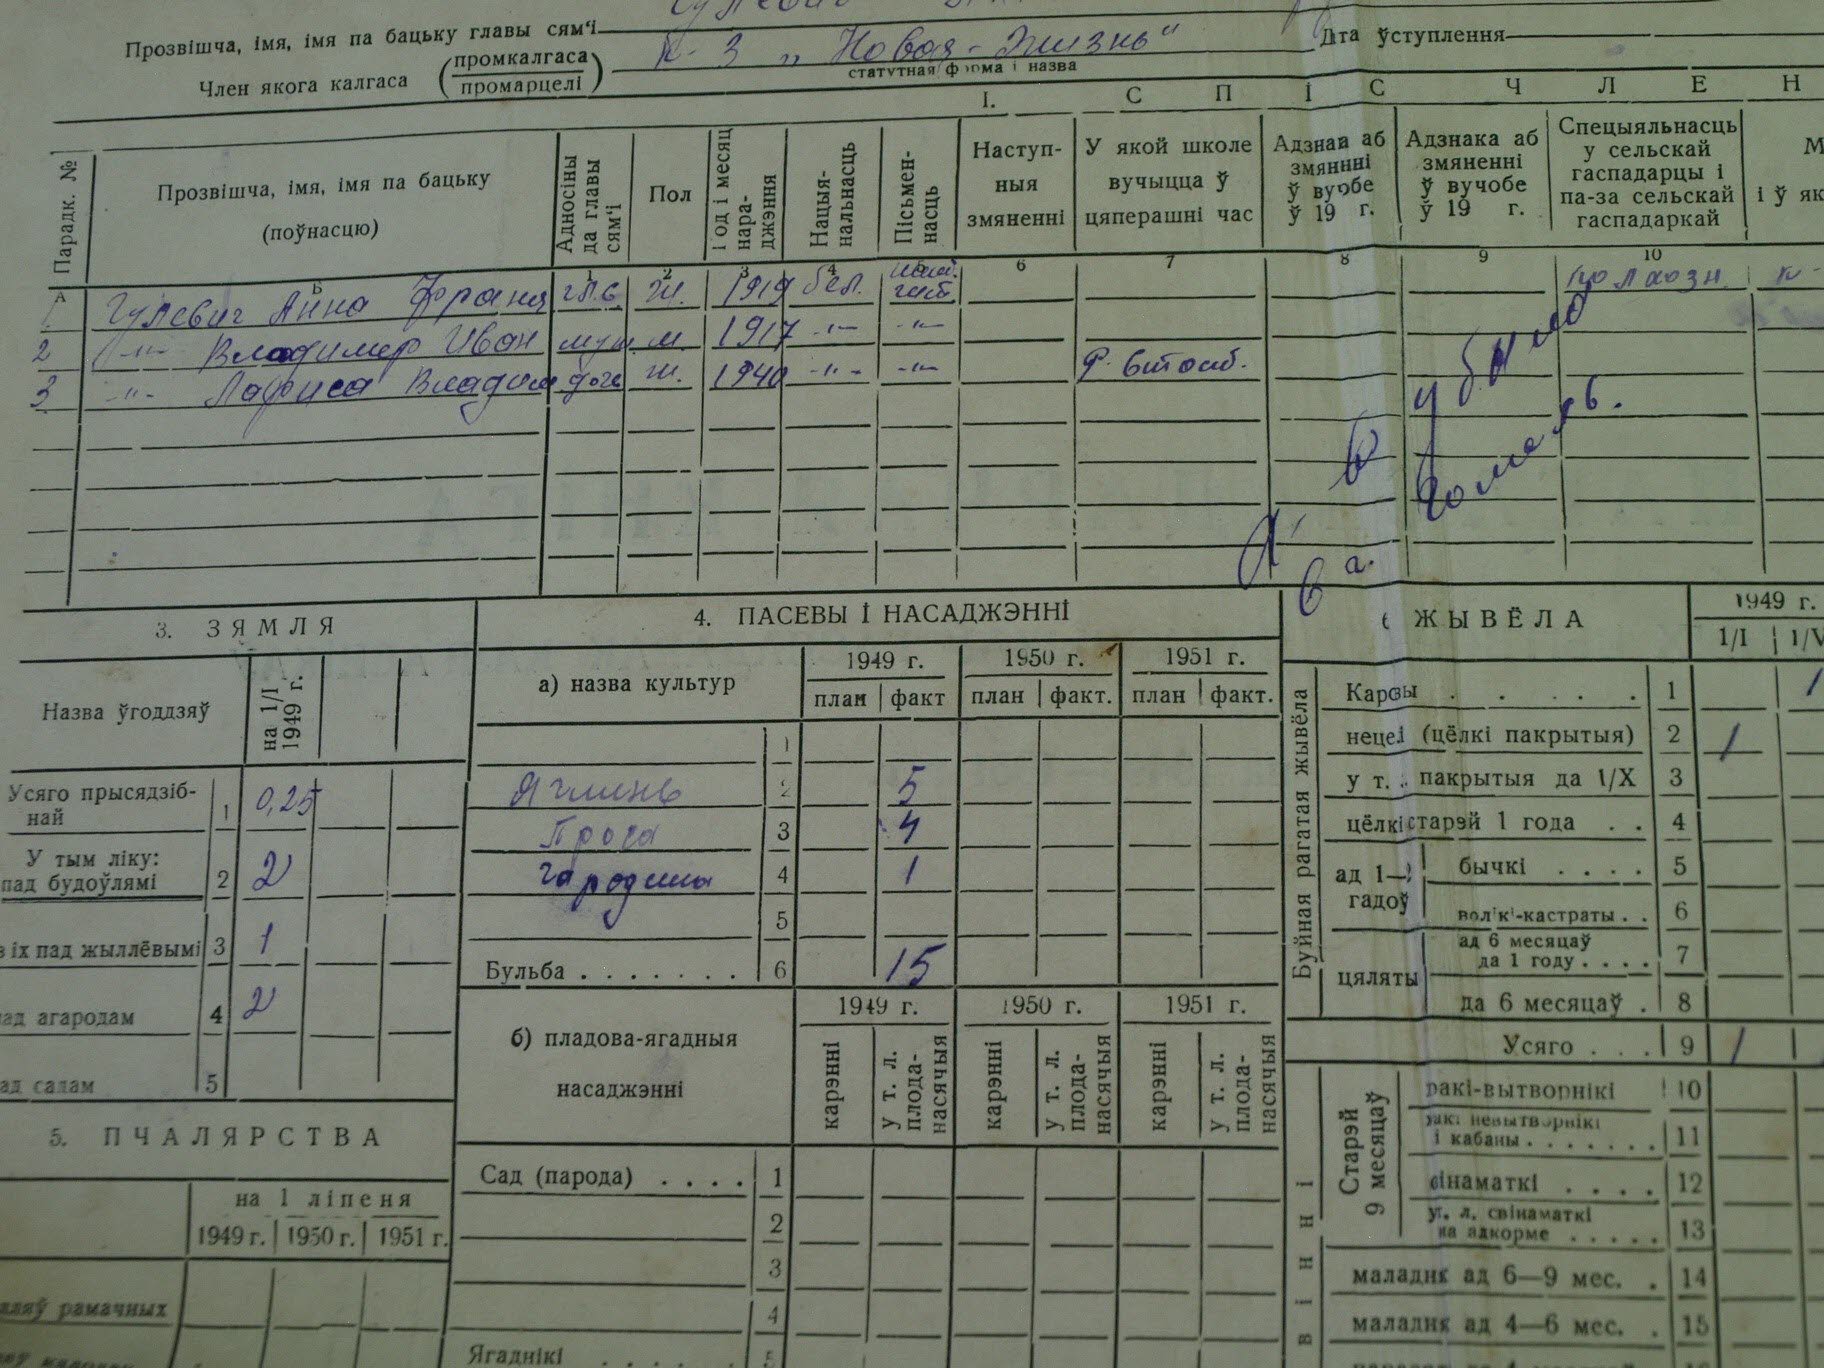 Прозвішча, імя, імя па бацьку главы сям'і
Член якога калгаса (промкалгаса промарцелі) К-з „Новая-Жизнь“ Дата ўступлення
статутная форма і назва
I. С П І С Ч Л Е Н
Парадк. № Прозвішча, імя, імя па бацьку (поўнасцю) Адносіны да главы сям'і Пол Год і месяц нараджэння Нацыянальнасць Пісьменнасць Наступныя змяненні У якой школе вучыцца ў цяперашні час Адзнака аб змяненні ў вучобе ў 19 г. Адзнака аб змяненні ў вучобе ў 19 г. Спецыяльнасць у сельскай гаспадарцы і па-за сельскай гаспадаркай М і ў як
А Б 1 2 3 4 5 6 7 8 9 10
1 Гулевич Анна Франц гл.с. ж. 1919 бел.
2 -"- Владимер Иван муж м. 1917 -"- -"-
3 -"- Лариса Владим доч ж. 1940 -"- -"-
убыла
в
Гомель.
3. ЗЯМЛЯ
Назва ўгоддзяў на 1/I 1949 г.
Усяго прысядзібнай 1 0,25
У тым ліку: пад будоўлямі 2 2
з іх пад жыллёвымі 3 1
пад агародам 4 2
пад садам 5
4. ПАСЕВЫ І НАСАДЖЭННІ
а) назва культур 1949 г. 1950 г. 1951 г.
план факт план факт. план факт.
1
Ячмень 2 5
Проса 3 4
Гародніна 4 1
5
Бульба . . . . . . . 6 15
б) пладова-ягадныя насаджэнні 1949 г. 1950 г. 1951 г.
карэнні у т. л. пладанасячыя карэнні у т. л. пладанасячыя карэнні у т. л. пладанасячыя
Сад (парода) . . . . 1
2
3
4
Ягаднікі . . . . 5
5. ПЧАЛЯРСТВА
на 1 ліпеня
1949 г. 1950 г. 1951 г.
рамачных
6 ЖЫВЁЛА 1949 г.
1/I 1/V
Буйная рагатая жывёла
Каровы . . . . . 1 1
нецелі (цёлкі пакрытыя) 2 1
у т. л. пакрытыя да 1/X 3
цёлкі старэй 1 года . . 4
ад 1—2 гадоў бычкі . . . . 5
волікі-кастраты . . 6
цяляты ад 6 месяцаў да 1 году . . . . 7
да 6 месяцаў . 8
Усяго . . . 9 1
Старэй 9 месяцаў
кракі-вытворнікі 10
кракі невытворнікі і кабаны . . . . . . . 11
свінаматкі . . . . 12
у т. л. свінаматкі на адкорме . . . . . 13
маладняк ад 6—9 мес. . 14
маладняк ад 4—6 мес. . 15